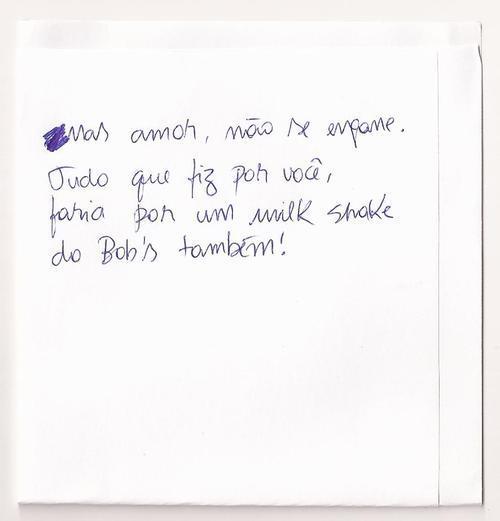 mas amor, não se engane.
Tudo que fiz por você,
faria por um milk shake
do Bob's também!